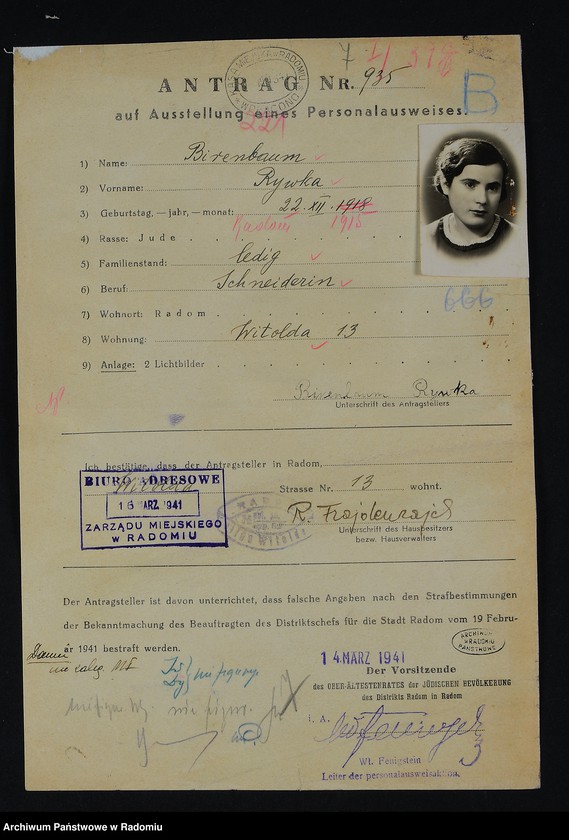 ANTRAG NR. 935
auf Ausstellung eines Personalausweises.
B
221
1) Name: Birenbaum
2) Vorname: Rywka
3) Geburtstag, — jahr, — monat: 22. XII. 1918
1915
4) Rasse: Jude
5) Familienstand: ledig
6) Beruf: Schneiderin
666
7) Wohnort: Radom
8) Wohnung: Witolda 13
9) Anlage: 2 Lichtbilder
Birenbaum Rywka
Unterschrift des Antragstellers
Ich bestätige, dass der Antragsteller in Radom,
Witolda Strasse Nr. 13 wohnt.
BIURO ADRESOWE
16 MARZ 1941
ZARZĄDU MIEJSKIEGO
W RADOMIU
R.
Unterschrift des Hausbesitzers
bezw. Hausverwalters
Der Antragsteller ist davon unterrichtet, dass falsche Angaben nach den Strafbestimmungen
der Bekanntmachung des Beauftragten des Distriktschefs für die Stadt Radom vom 19 Febru-
ar 1941 bestraft werden.
ARCHIWUM
W RADOMIU
PAŃSTWOWE
14. MÄRZ 1941
Der Vorsitzende
des OBER-ÄLTESTENRATES DER JÜDISCHEN BEVÖLKERUNG
des Distrikts Radom in Radom
i. A.
Wł. Fenigstein
Leiter der personalausweisaktion.
Archiwum Państwowe w Radomiu